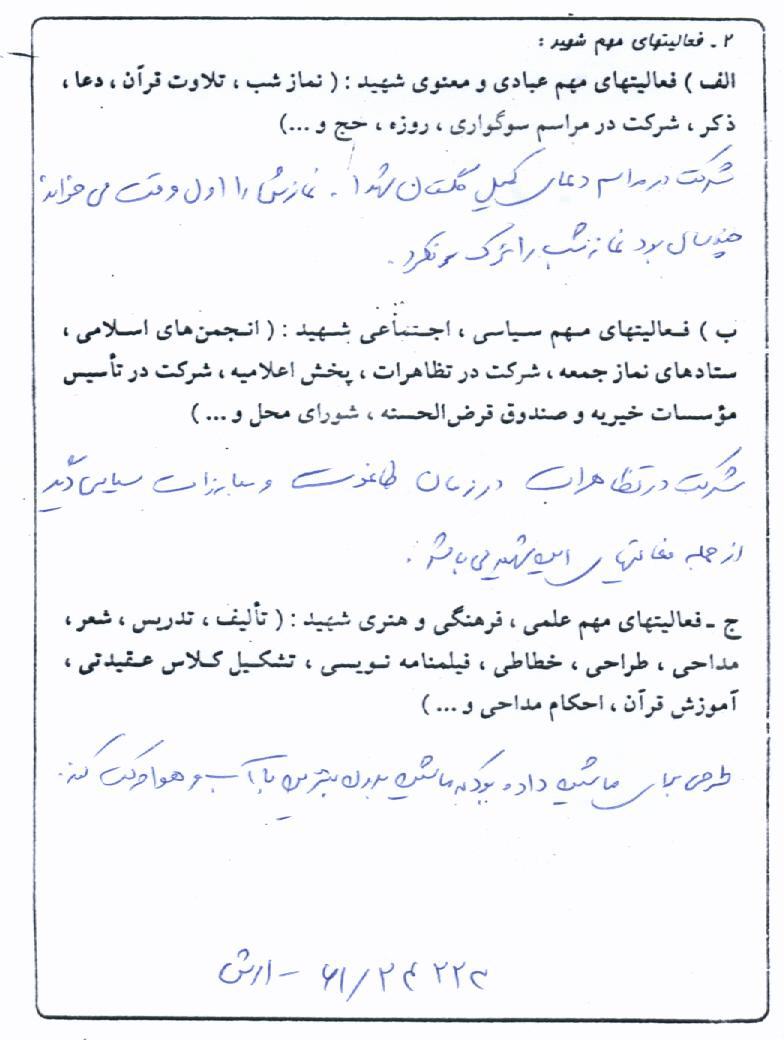 ۲ ـ فعالیتهای مهم شهید :
الف ) فعالیتهای مهم عبادی و معنوی شهید : ( نماز شب ، تلاوت قرآن ، دعا ،
ذکر ، شرکت در مراسم سوگواری ، روزه ، حج و ...)
شرکت در مراسم دعای کمیل گلستان شهدا . نمازش را اول وقت می خواند
چند سال بود نماز شب را ترک نکرد .
ب ) فـعالیتهای مـهم سـیاسی ، اجـتماعی شـهید : ( انـجمن‌های اسـلامی ،
ستادهای نماز جمعه ، شرکت در تظاهرات ، پخش اعلامیه ، شرکت در تأسیس
مؤسسات خیریه و صندوق قرض‌الحسنه ، شورای محل و ... )
شرکت در تظاهرات در زمان طاغوت و مبارزات سیاسی دیگر
از جمله فعالیتهای این شهید می باشد .
ج ـ فعالیتهای مهم علمی ، فرهنگی و هنری شهید : ( تألیف ، تدریس ، شعر ،
مداحی ، طراحی ، خطاطی ، فیلمنامه نـویسی ، تشکـیل کـلاس عـقیدتی ،
آموزش قرآن ، احکام مداحی و ... )
طرحی برای ماشین داده بود که ماشین بدون بنزین با آب و هوا حرکت کند.
۶۱/۲۴۲۲۲ - ارتش